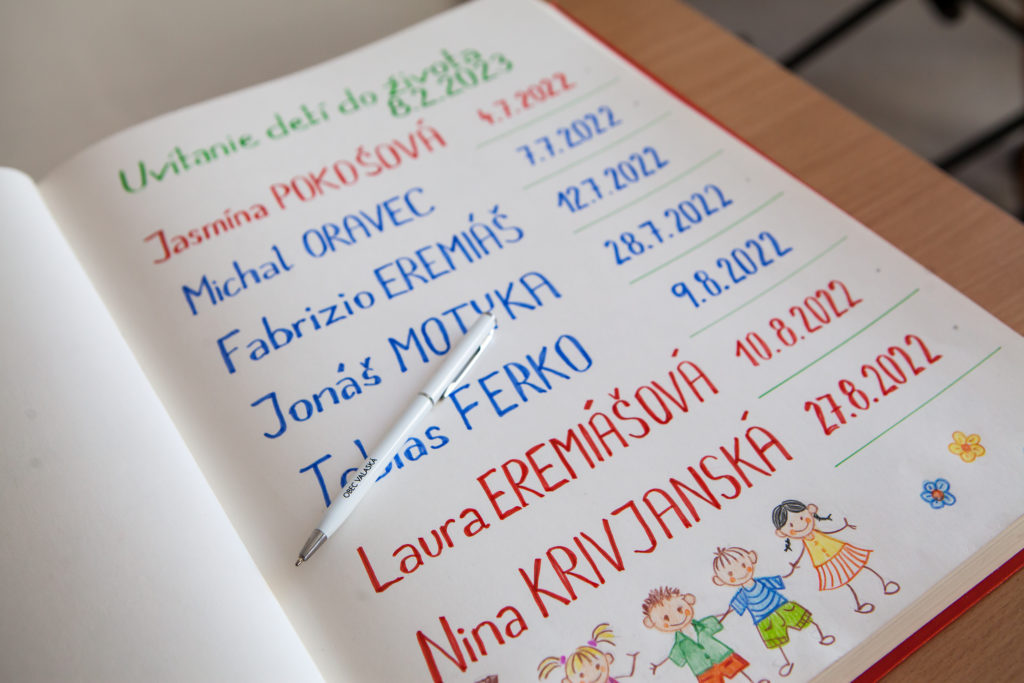 Uvítanie detí do života
8.2.2023
Jasmína POKOŠOVÁ 4.7.2022
Michal ORAVEC 7.7.2022
Fabrizio EREMIÁŠ 12.7.2022
Jonáš MOTYKA 28.7.2022
Tobias FERKO 9.8.2022
Laura EREMIÁŠOVÁ 10.8.2022
Nina KRIVJANSKÁ 27.8.2022
OBEC VALASKÁ